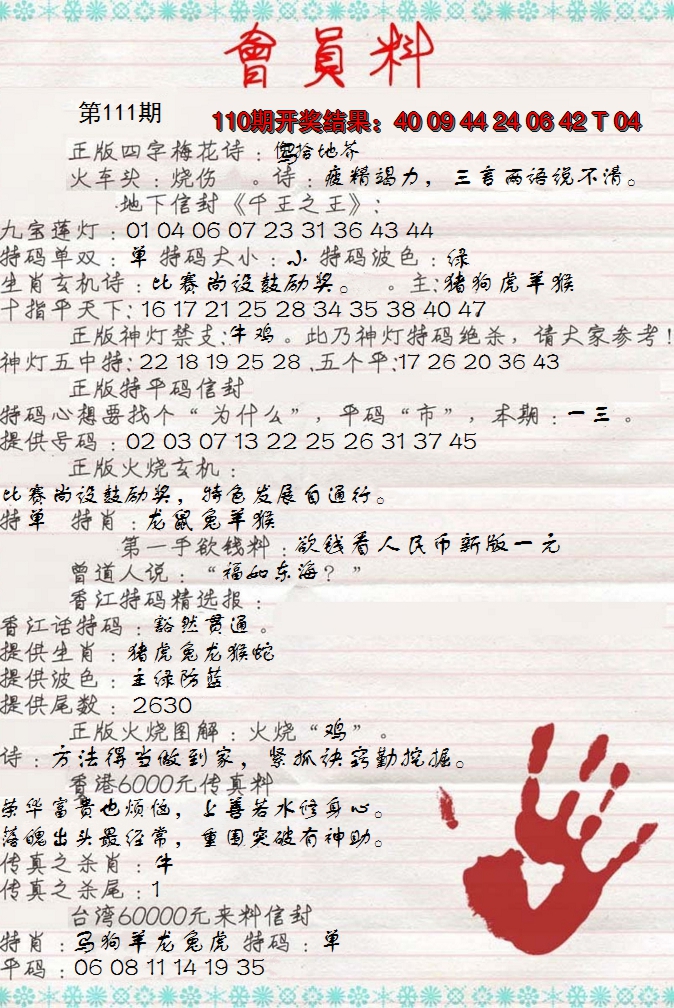 會員料
第111期
110期开奖结果：40 09 44 24 06 42 T 04
正版四字梅花诗：俯拾地芥
火车头：烧伤 。诗：疲精竭力，三言两语说不清。
地下信封《千王之王》：
九宝莲灯：01 04 06 07 23 31 36 43 44
特码单双：单 特码大小：小 特码波色：绿
生肖玄机诗：比赛尚设鼓励奖。 。主：猪狗虎羊猴
十指平天下：16 17 21 25 28 34 35 38 40 47
正版神灯禁支：牛鸡。此乃神灯特码绝杀，请大家参考！
神灯五中特：22 18 19 25 28 .五个平：17 26 20 36 43
正版特平码信封
特码心想要找个“为什么”，平码“市”，本期：一三。
提供号码：02 03 07 13 22 25 26 31 37 45
正版火烧玄机：
比赛尚设鼓励奖，特色发展自通行。
特单 特肖：龙鼠兔羊猴
第一手欲钱料：欲钱看人民币新版一元
曾道人说：“福如东海？”
香江特码精选报：
香江话特码：豁然贯通。
提供生肖：猪虎兔龙猴蛇
提供波色：主绿防蓝
提供尾数：2630
正版火烧图解：火烧“鸡”。
诗：方法得当做到家，紧抓诀窍勤挖掘。
香港6000元传真料
荣华富贵也烦恼，上善若水修身心。
落魄出头最经常，重围突破有神助。
传真之杀肖：牛
传真之杀尾：1
台湾60000元来料信封
特肖：马狗羊龙兔虎 特码：单
平码：06 08 11 14 19 35